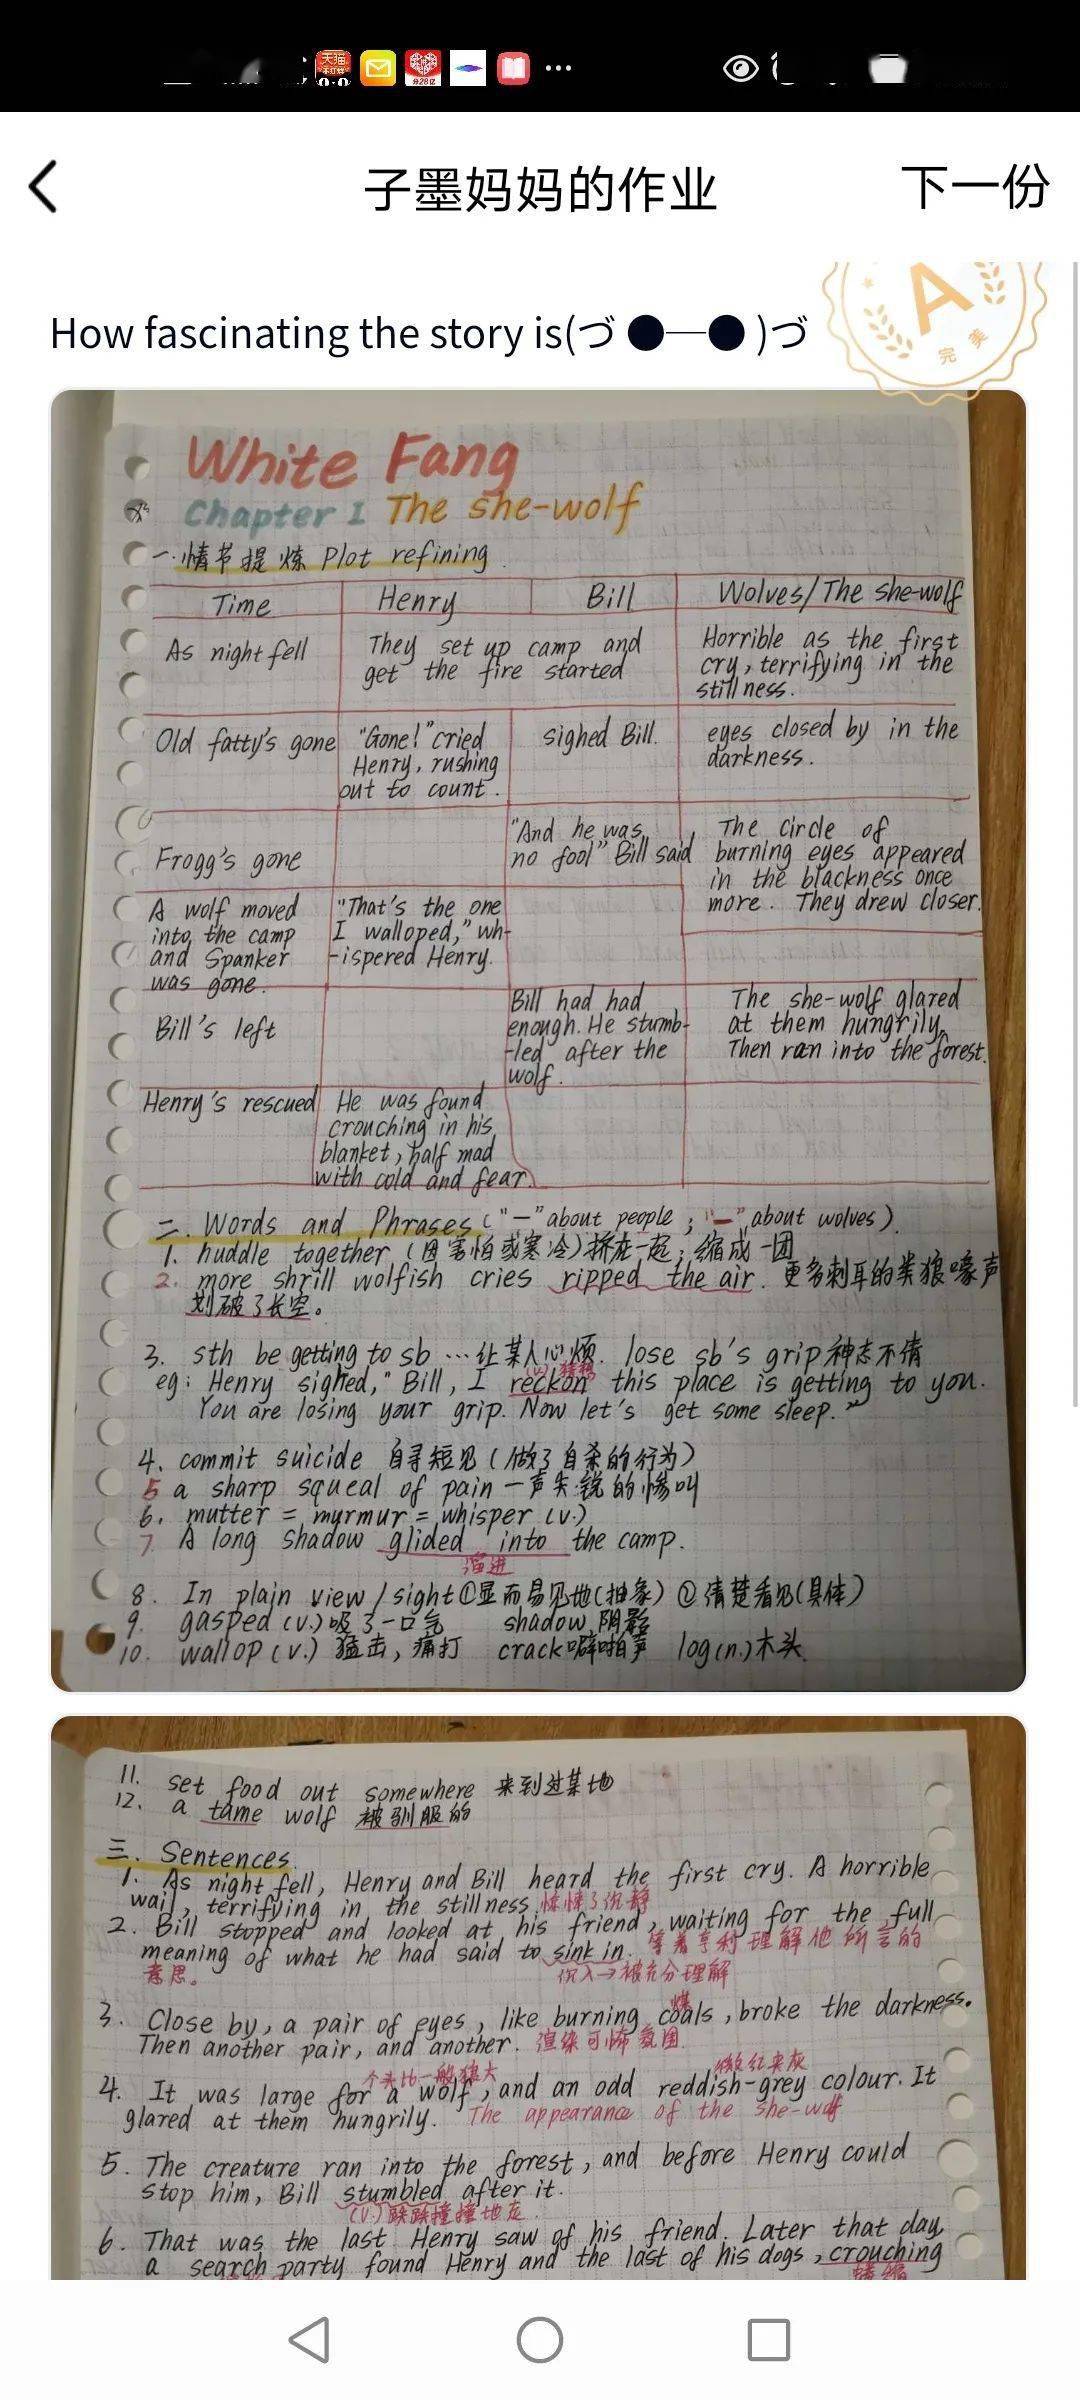 子墨妈妈的作业
下一份
How fascinating the story is(づ ●─● )づ
A
完美
White Fang
Chapter 1 The she-wolf
一.情节提炼 Plot refining
Time Henry Bill Wolves/The she-wolf
As night fell
They set up camp and
get the fire started
Horrible as the first
cry, terrifying in the
stillness.
Old fatty's gone
"Gone!" cried
Henry, rushing
out to count.
sighed Bill.
eyes closed by in the
darkness.
Frogg's gone
"And he was
no fool" Bill said
The circle of
burning eyes appeared
in the blackness once
more. They drew closer.
A wolf moved
into the camp
and Spanker
was gone.
"That's the one
I walloped," wh-
-ispered Henry.
Bill's left
Bill had had
enough. He stumb-
-led after the
wolf.
The she-wolf glared
at them hungrily.
Then ran into the forest.
Henry's rescued
He was found
crouching in his
blanket, half mad
with cold and fear.
二. Words and Phrases ("—" about people ; "—" about wolves).
1. huddle together (因害怕或寒冷)挤在一起;缩成一团
2. more shrill wolfish cries ripped the air. 更多刺耳的类狼嚎声
划破了长空。
3. sth be getting to sb …让某人心烦. lose sb's grip 神志不清
(v.)猜想
eg: Henry sighed," Bill, I reckon this place is getting to you.
You are losing your grip. Now let's get some sleep."
4. commit suicide 自寻短见(做了自杀的行为)
5 a sharp squeal of pain 一声尖锐的惨叫
6. mutter = myrmur = whisper (v.)
7. A long shadow glided into the camp.
溜进
8. In plain view / sight ①显而易见地(抽象) ②清楚看见(具体)
9. gasped (v.) 吸了一口气 shadow 阴影
10. wallop (v.) 猛击,痛打 crack 噼啪声 log(n.)木头
11. set food out somewhere 来到过某地
12. a tame wolf 被驯服的
三. Sentences
1. As night fell, Henry and Bill heard the first cry. A horrible
wail, terrifying in the stillness. 惊悚了沉静
2. Bill stopped and looked at his friend, waiting for the full
meaning of what he had said to sink in. 等着亨利理解他所言的
意思。
沉入→被充分理解
煤
3. Close by, a pair of eyes, like burning coals, broke the darkness.
Then another pair, and another. 渲染可怖氛围
个头比一般狼大 微红夹灰
4. It was large for a wolf, and an odd reddish-grey colour. It
glared at them hungrily. The appearance of the she-wolf
5. The creature ran into the forest, and before Henry could
stop him, Bill stumbled after it.
(v.)跌跌撞撞地走
6. That was the last Henry saw of his friend. Later that day,
a search party found Henry and the last of his dogs, crouching